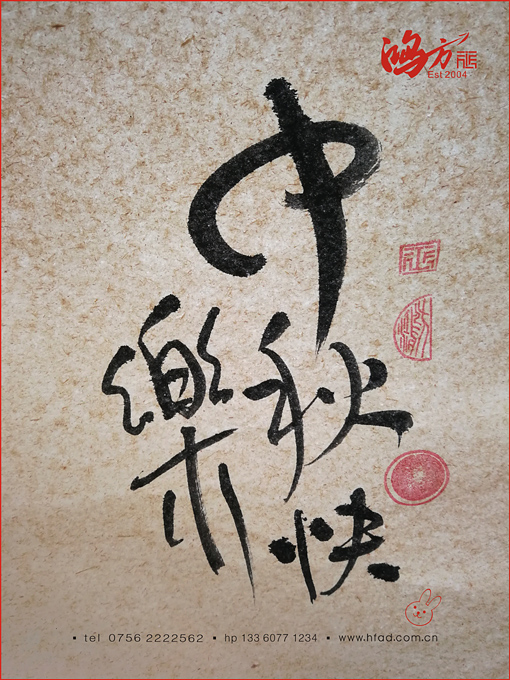 鸿方
Est 2004
中
秋
快
樂
▪ tel 0756 2222562 ▪ hp 133 6077 1234 ▪ www.hfad.com.cn